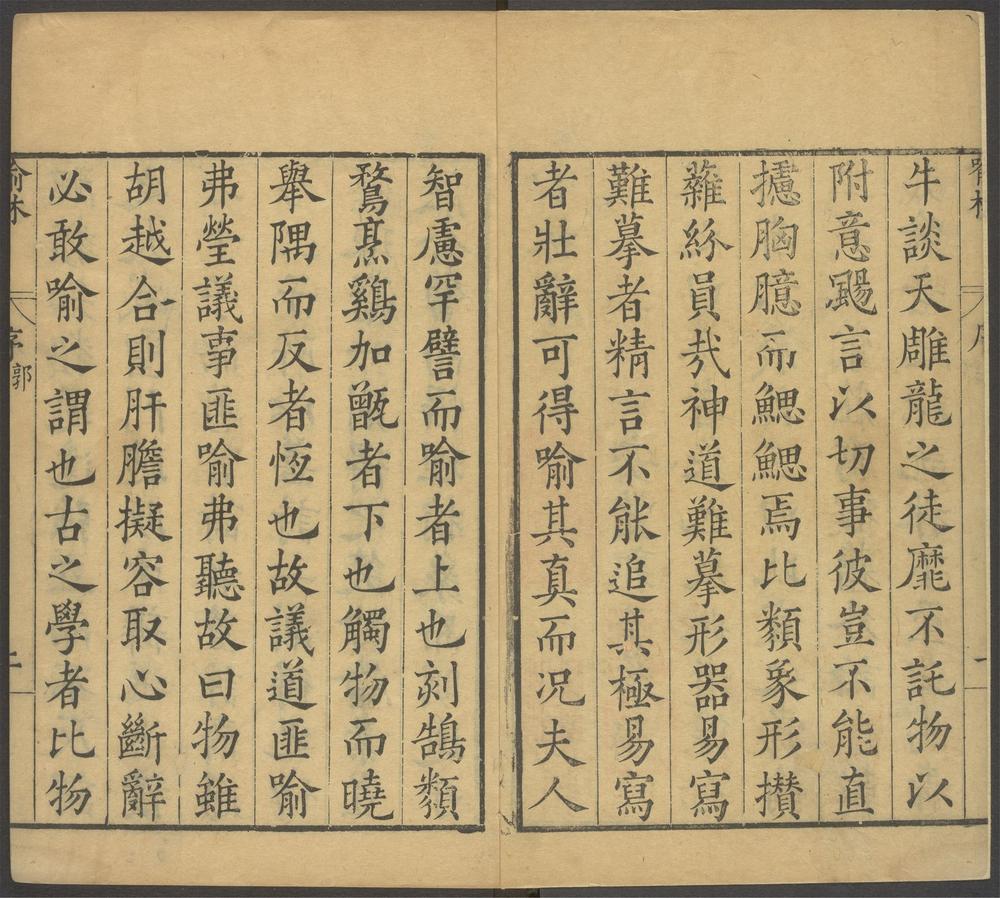 牛談天雕龍之徒靡不託物以
附意颺言以切事彼豈不能直
攄胸臆而鰓鰓焉比類象形攅
蕹紛員㢤神道難摹形器易寫
難摹者精言不能追其極易寫
者壯辭可得喻其真而况夫人
智慮罕譬而喻者上也刻鵠類
鶩烹鷄加甑者下也觸物而曉
舉隅而反者恆也故議道匪喻
弗瑩議事匪喻弗聽故曰物雖
胡越合則肝膽擬容取心斷辭
必敢喻之謂也古之學者比物
喻林 序 郭 二